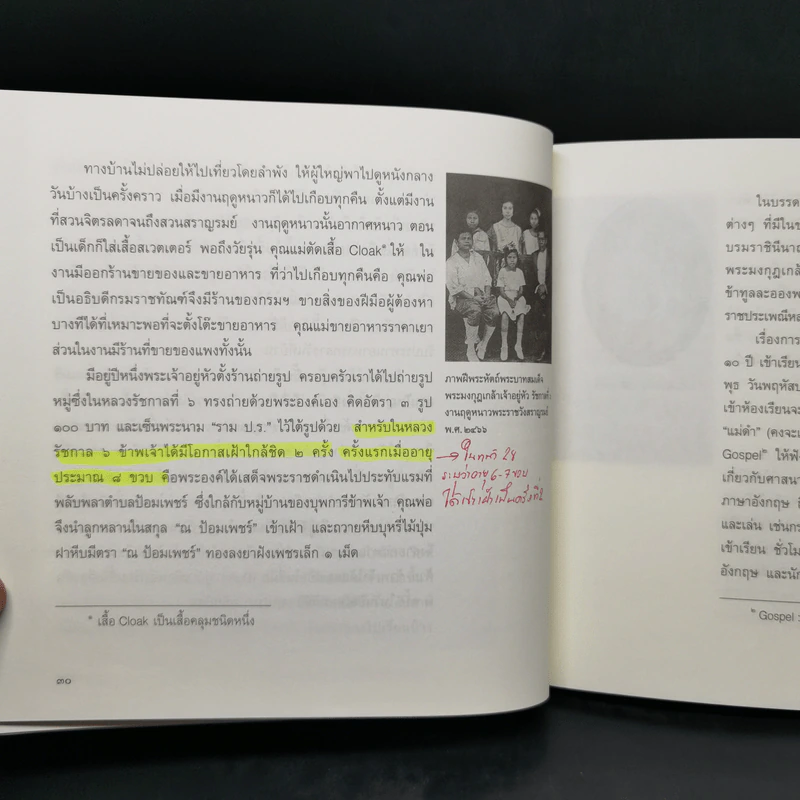 ทางบ้านไม่ปล่อยให้ไปเที่ยวโดยลำพัง ให้ผู้ใหญ่พาไปดูหนังกลาง
วันบ้างเป็นครั้งคราว เมื่อมีงานฤดูหนาวก็ได้ไปเกือบทุกคืน ตั้งแต่มีงาน
ที่สวนจิตรลดาจนถึงสวนสราญรมย์ งานฤดูหนาวนั้นอากาศหนาว ตอน
เป็นเด็กก็ใส่เสื้อสเวตเตอร์ พอถึงวัยรุ่น คุณแม่ตัดเสื้อ Cloak* ให้ ใน
งานมีออกร้านขายของและขายอาหาร ที่ว่าไปเกือบทุกคืนคือ คุณพ่อ
เป็นอธิบดีกรมราชทัณฑ์จึงมีร้านของกรมฯ ขายสิ่งของฝีมือผู้ต้องหา
บางทีได้ที่เหมาะพอที่จะตั้งโต๊ะขายอาหาร คุณแม่ขายอาหารราคาเยา
ส่วนในงานมีร้านที่ขายของแพงทั้งนั้น
มีอยู่ปีหนึ่งพระเจ้าอยู่หัวตั้งร้านถ่ายรูป ครอบครัวเราได้ไปถ่ายรูป
หมู่ซึ่งในหลวงรัชกาลที่ ๖ ทรงถ่ายด้วยพระองค์เอง คิดอัตรา ๓ รูป
๑๐๐ บาท และเซ็นพระนาม “ราม ป.ร.” ไว้ใต้รูปด้วย สำหรับในหลวง
รัชกาล ๖ ข้าพเจ้าได้มีโอกาสเฝ้าใกล้ชิด ๒ ครั้ง ครั้งแรกเมื่ออายุ
ประมาณ ๘ ขวบ คือพระองค์ได้เสด็จพระราชดำเนินไปประทับแรมที่
พลับพลาตำบลป้อมเพชร์ ซึ่งใกล้กับหมู่บ้านของบุพการีข้าพเจ้า คุณพ่อ
จึงนำลูกหลานในสกุล “ณ ป้อมเพชร์” เข้าเฝ้า และถวายหีบบุหรี่ไม้ปุ่ม
ฝาหีบมีตรา “ณ ป้อมเพชร์” ทองลงยาฝังเพชรเล็ก ๑ เม็ด
* เสื้อ Cloak เป็นเสื้อคลุมชนิดหนึ่ง
๓๐
ภาพฝีพระหัตถ์พระบาทสมเด็จ
พระมงกุฎเกล้าเจ้าอยู่หัว รัชกาลที่
งานฤดูหนาวพระราชวังสราญรมย์
พ.ศ. ๒๔๖๖
ในหน้า 28
ระบุว่าอายุ 6-7 ขวบ
ได้เข้าเฝ้าเป็นครั้งที่
ในบรรด
ต่างๆ ที่มีในข
บรมราชินีนาถ
พระมงกุฎเกล้
ข้าทูลละอองพ
ราชประเพณีหล
เรื่องการ
๑๐ ปี เข้าเรียน
พุธ วันพฤหัสบ
เข้าห้องเรียนจะ
“แม่ดำ” (คงจะเ
Gospel” ให้ฟัง
เกี่ยวกับศาสนา
ภาษาอังกฤษ
และเล่น เช่นกา
เข้าเรียน ชั่วโม
อังกฤษ และนัก
* Gospel :